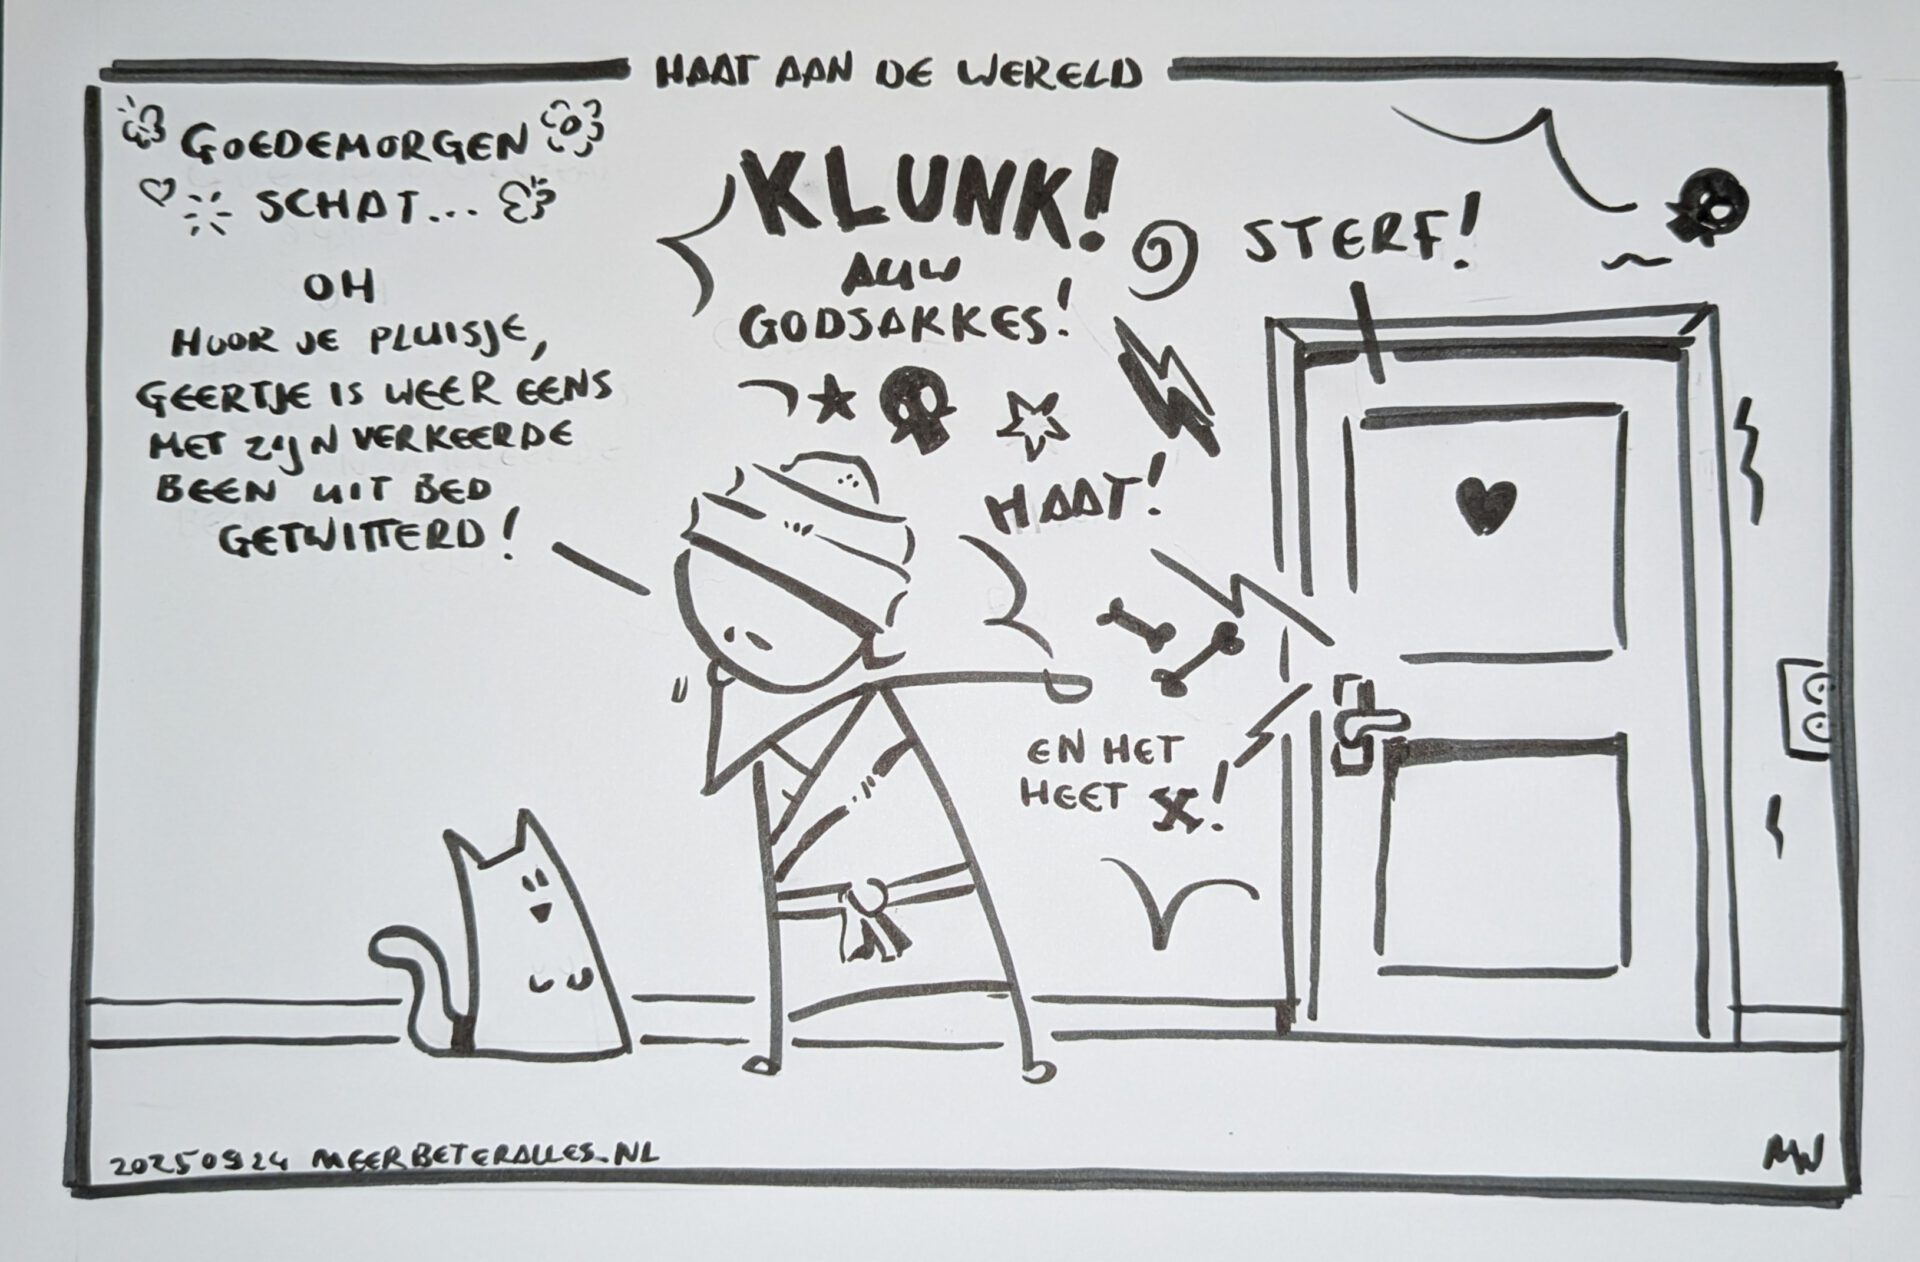 HAAT AAN DE WERELD
GOEDEMORGEN
SCHAT...
OH
HOOR JE PLUISJE,
GEERTJE IS WEER EENS
MET ZIJN VERKEERDE
BEEN UIT BED
GETWITTERD!
KLUNK!
AUW
GODSAKKES!
STERF!
HAAT!
EN HET
HEET X!
20250924 MEERBETERALLES.NL
MW